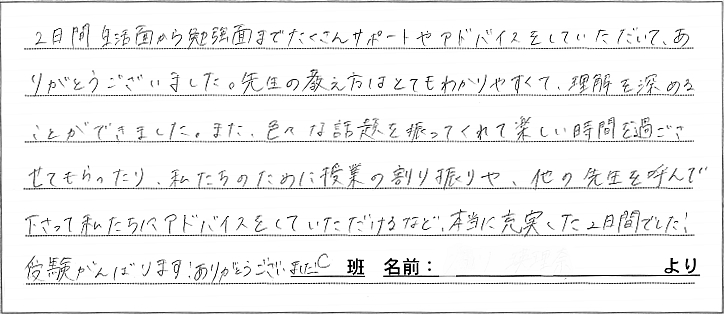 2日間生活面から勉強面までたくさんサポートやアドバイスをしていただいて、あ
りがとうございました。先生の教え方はとてもわかりやすくて、理解を深める
ことができました。また、色々な話題を振ってくれて楽しい時間を過ごさ
せてもらったり、私たちのために授業の割り振りや、他の先生を呼んで
下さって私たちにアドバイスをしていただけるなど、本当に充実した2日間でした!
受験がんばります!ありがとうございました! C 班 名前： より